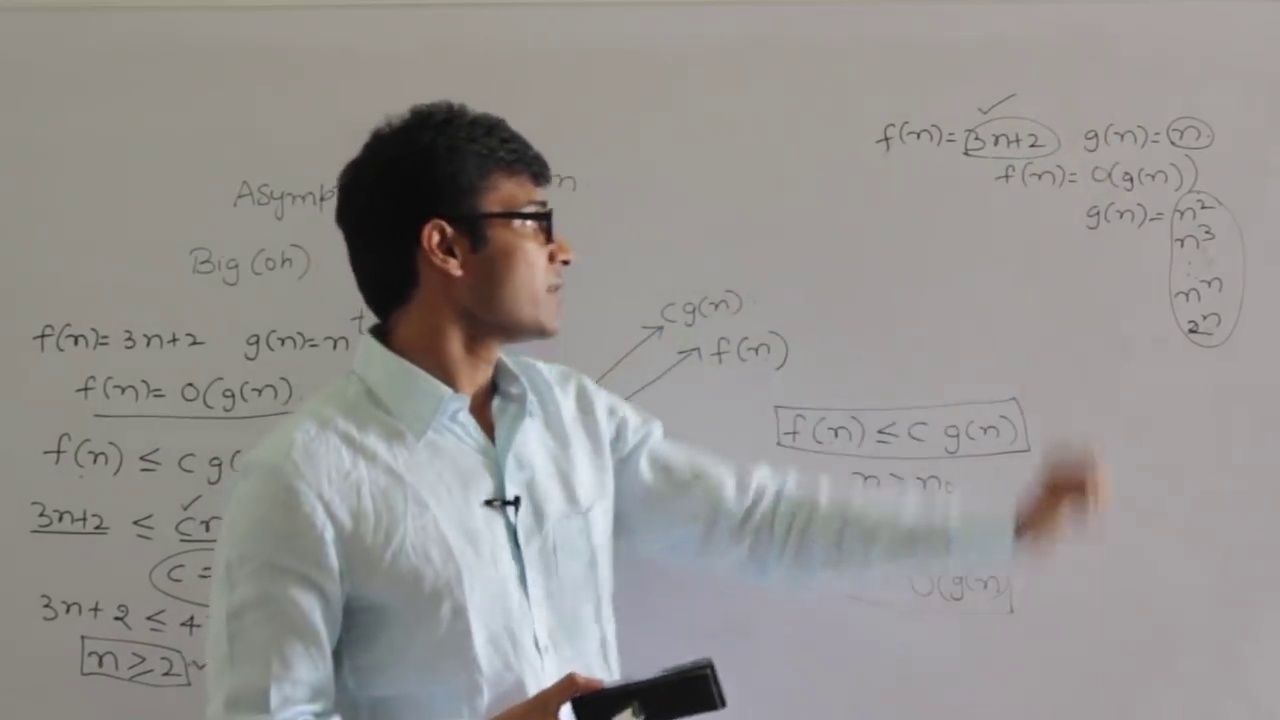 Big (oh)
f(n)= 3n+2 g(n)=n
f(n)= O(g(n)
f(n) ≤ c g(
3n+2 ≤
c =
3n+2 ≤ 4
n ≥ 2
c g(n)
f(n)
f(n) ≤ c g(n)
O(g(n)
f(n)= 3n+2 g(n)= n
f(n)= O(g(n))
g(n)= n²
n³
:
nⁿ
2ⁿ